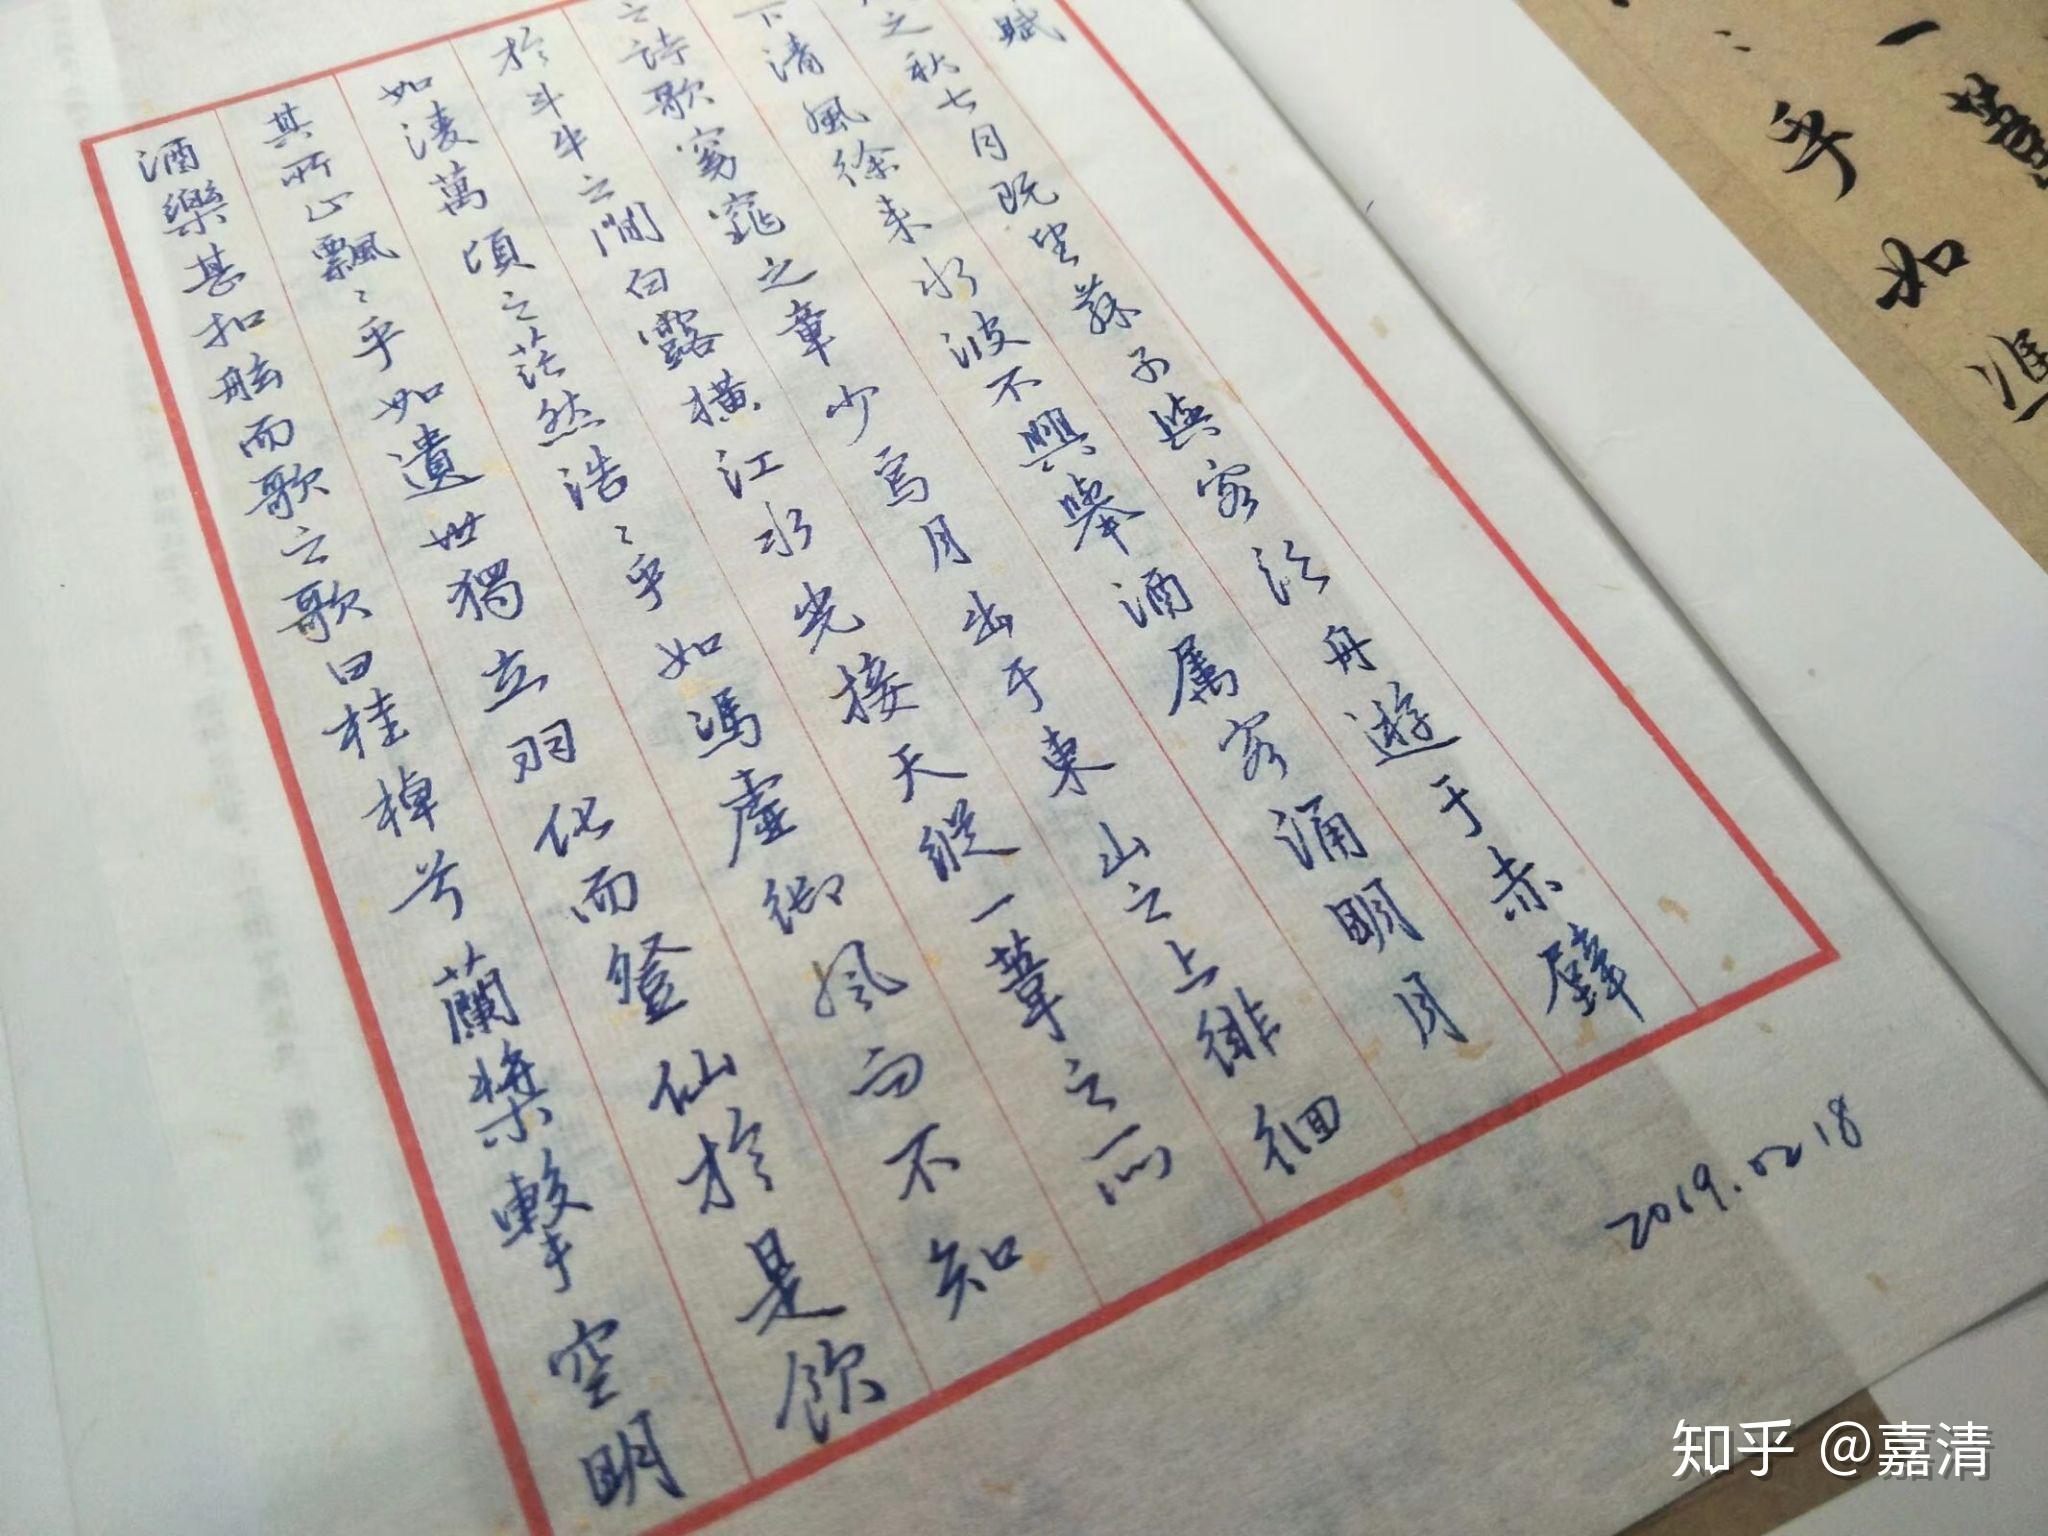 賦
之秋七月既望蘇子與客泛舟遊于赤壁
下清風徐来水波不興舉酒属客誦明月
之詩歌窈窕之章少焉月出于東山之上徘徊
於斗牛之間白露橫江水光接天縱一葦之所
如凌萬頃之茫然浩〻乎如馮虛御風而不知
其所止飄〻乎如遺世獨立羽化而登仙於是飲
酒樂甚扣舷而歌之歌曰桂棹兮蘭槳擊空明
2019.02.18
一葦
乎如馮
知乎 @嘉清